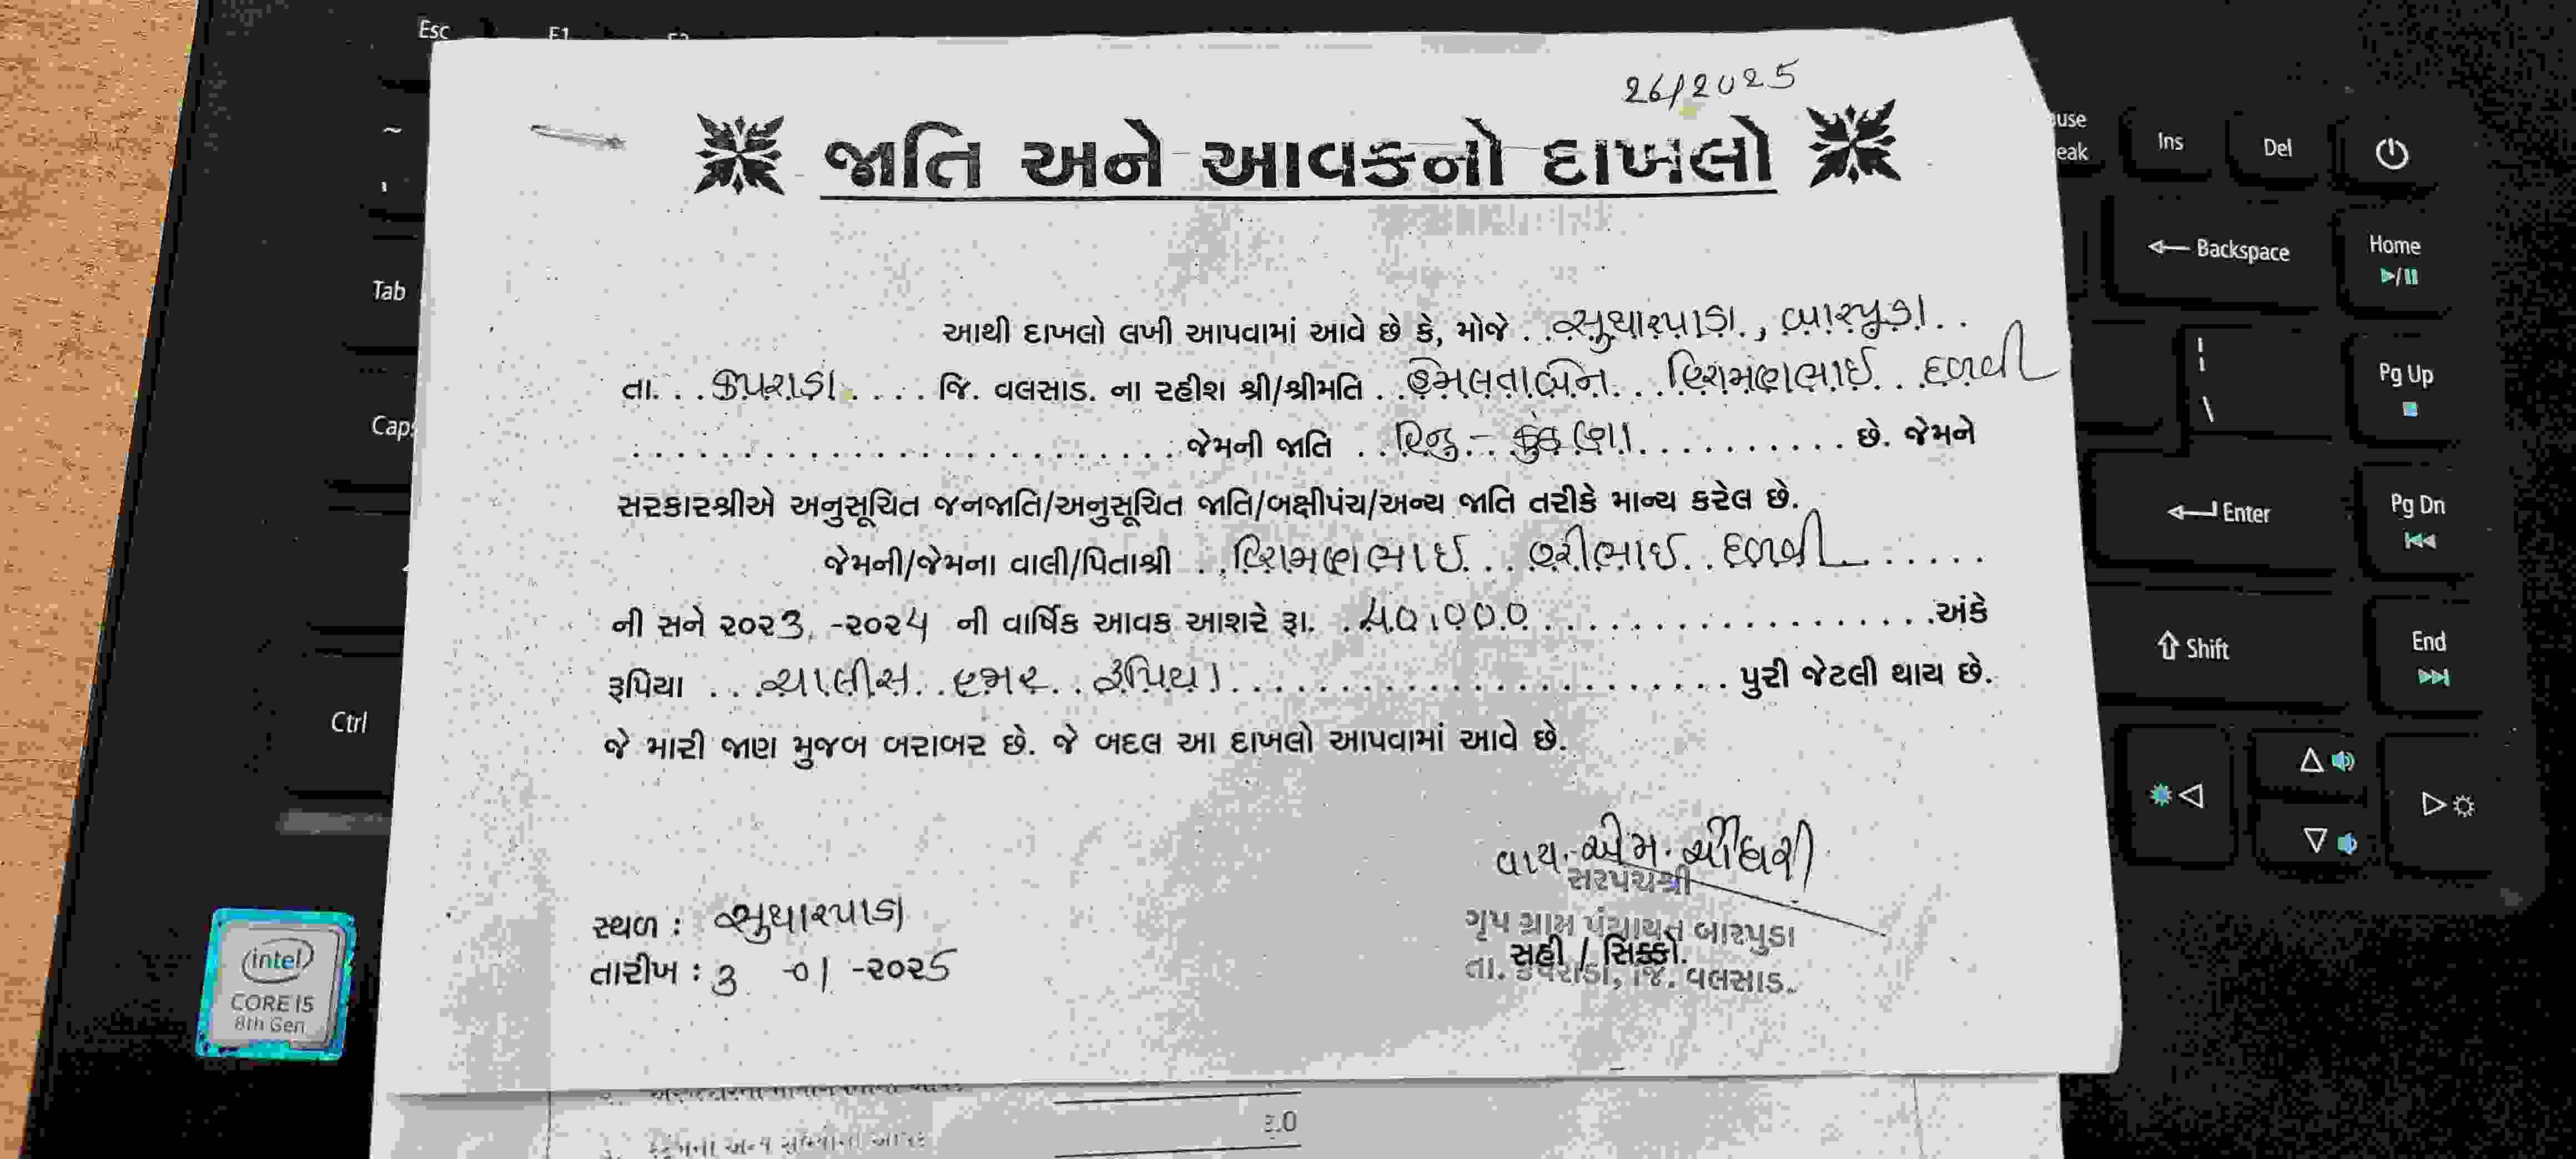 26/2025
જાતિ અને આવકનો દાખલો
આથી દાખલો લખી આપવામાં આવે છે કે, મોજે ..સુથારપાડા., બારપુડા..
તા...કપરાડા..... જિ. વલસાડ. ના રહીશ શ્રી/શ્રીમતિ ..હેમલતાબેન... ચિરામણભાઈ.. દળવી
..........................જેમની જાતિ ..હિન્દુ..-.. કુંકણા.......... છે. જેમને
સરકારશ્રીએ અનુસૂચિત જનજાતિ/અનુસૂચિત જાતિ/બક્ષીપંચ/અન્ય જાતિ તરીકે માન્ય કરેલ છે.
જેમની/જેમના વાલી/પિતાશ્રી ..ચિરામણભાઈ... હરીભાઈ.. દળવી......
ની સને ૨૦૨૩ -૨૦૨૪ ની વાર્ષિક આવક આશરે રૂા. .૪૦,૦૦૦..................અંકે
રૂપિયા ...ચાલીસ..હજાર..રૂપિયા........................ પુરી જેટલી થાય છે.
જે મારી જાણ મુજબ બરાબર છે. જે બદલ આ દાખલો આપવામાં આવે છે.
વાય.એમ. ચૌધરી
સરપંચશ્રી
સ્થળ : સુથારપાડા
ગૃપ ગ્રામ પંચાયત બારપુડા
સહી / સિક્કો.
તારીખ : ૩ -૦૧ -૨૦૨૫
તા. કપરાડા, જિ. વલસાડ.
Esc
F1
Tab
Caps
Ctrl
Ins
Del
Backspace
Home
Pg Up
Enter
Pg Dn
Shift
End
intel
CORE i5
8th Gen